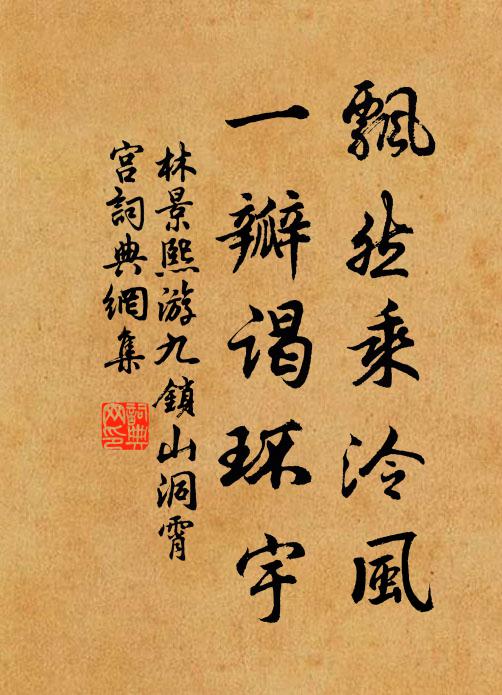 飄然乘泠風
一瓣謁琳宇
林景熙游九鎖山洞霄
宮詞典網集
詞典網印